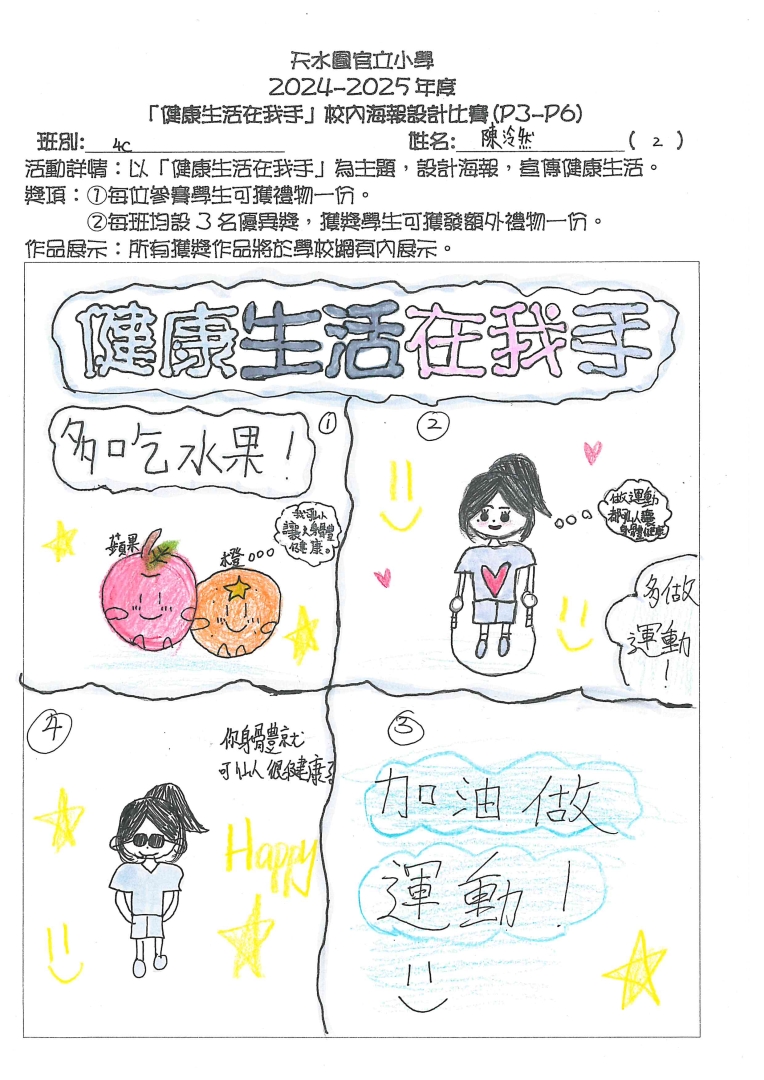 天水圍官立小學
2024-2025年度
「健康生活在我手」校內海報設計比賽(P3-P6)
班別: 4C 姓名: 陳泠然 ( 2 )
活動詳情：以「健康生活在我手」為主題，設計海報，宣傳健康生活。
獎項：①每位參賽學生可獲禮物一份。
②每班均設3名優異獎，獲獎學生可獲發額外禮物一份。
作品展示：所有獲獎作品將於學校網頁內展示。
健康生活在我手
①
多吃水果！
蘋果
橙
我可以
讓人身體
健康。
②
做運動
都可以讓
身體健康
多做
運動
！
③
加油做
運動！
④
你身體就
可以很健康了
Happy